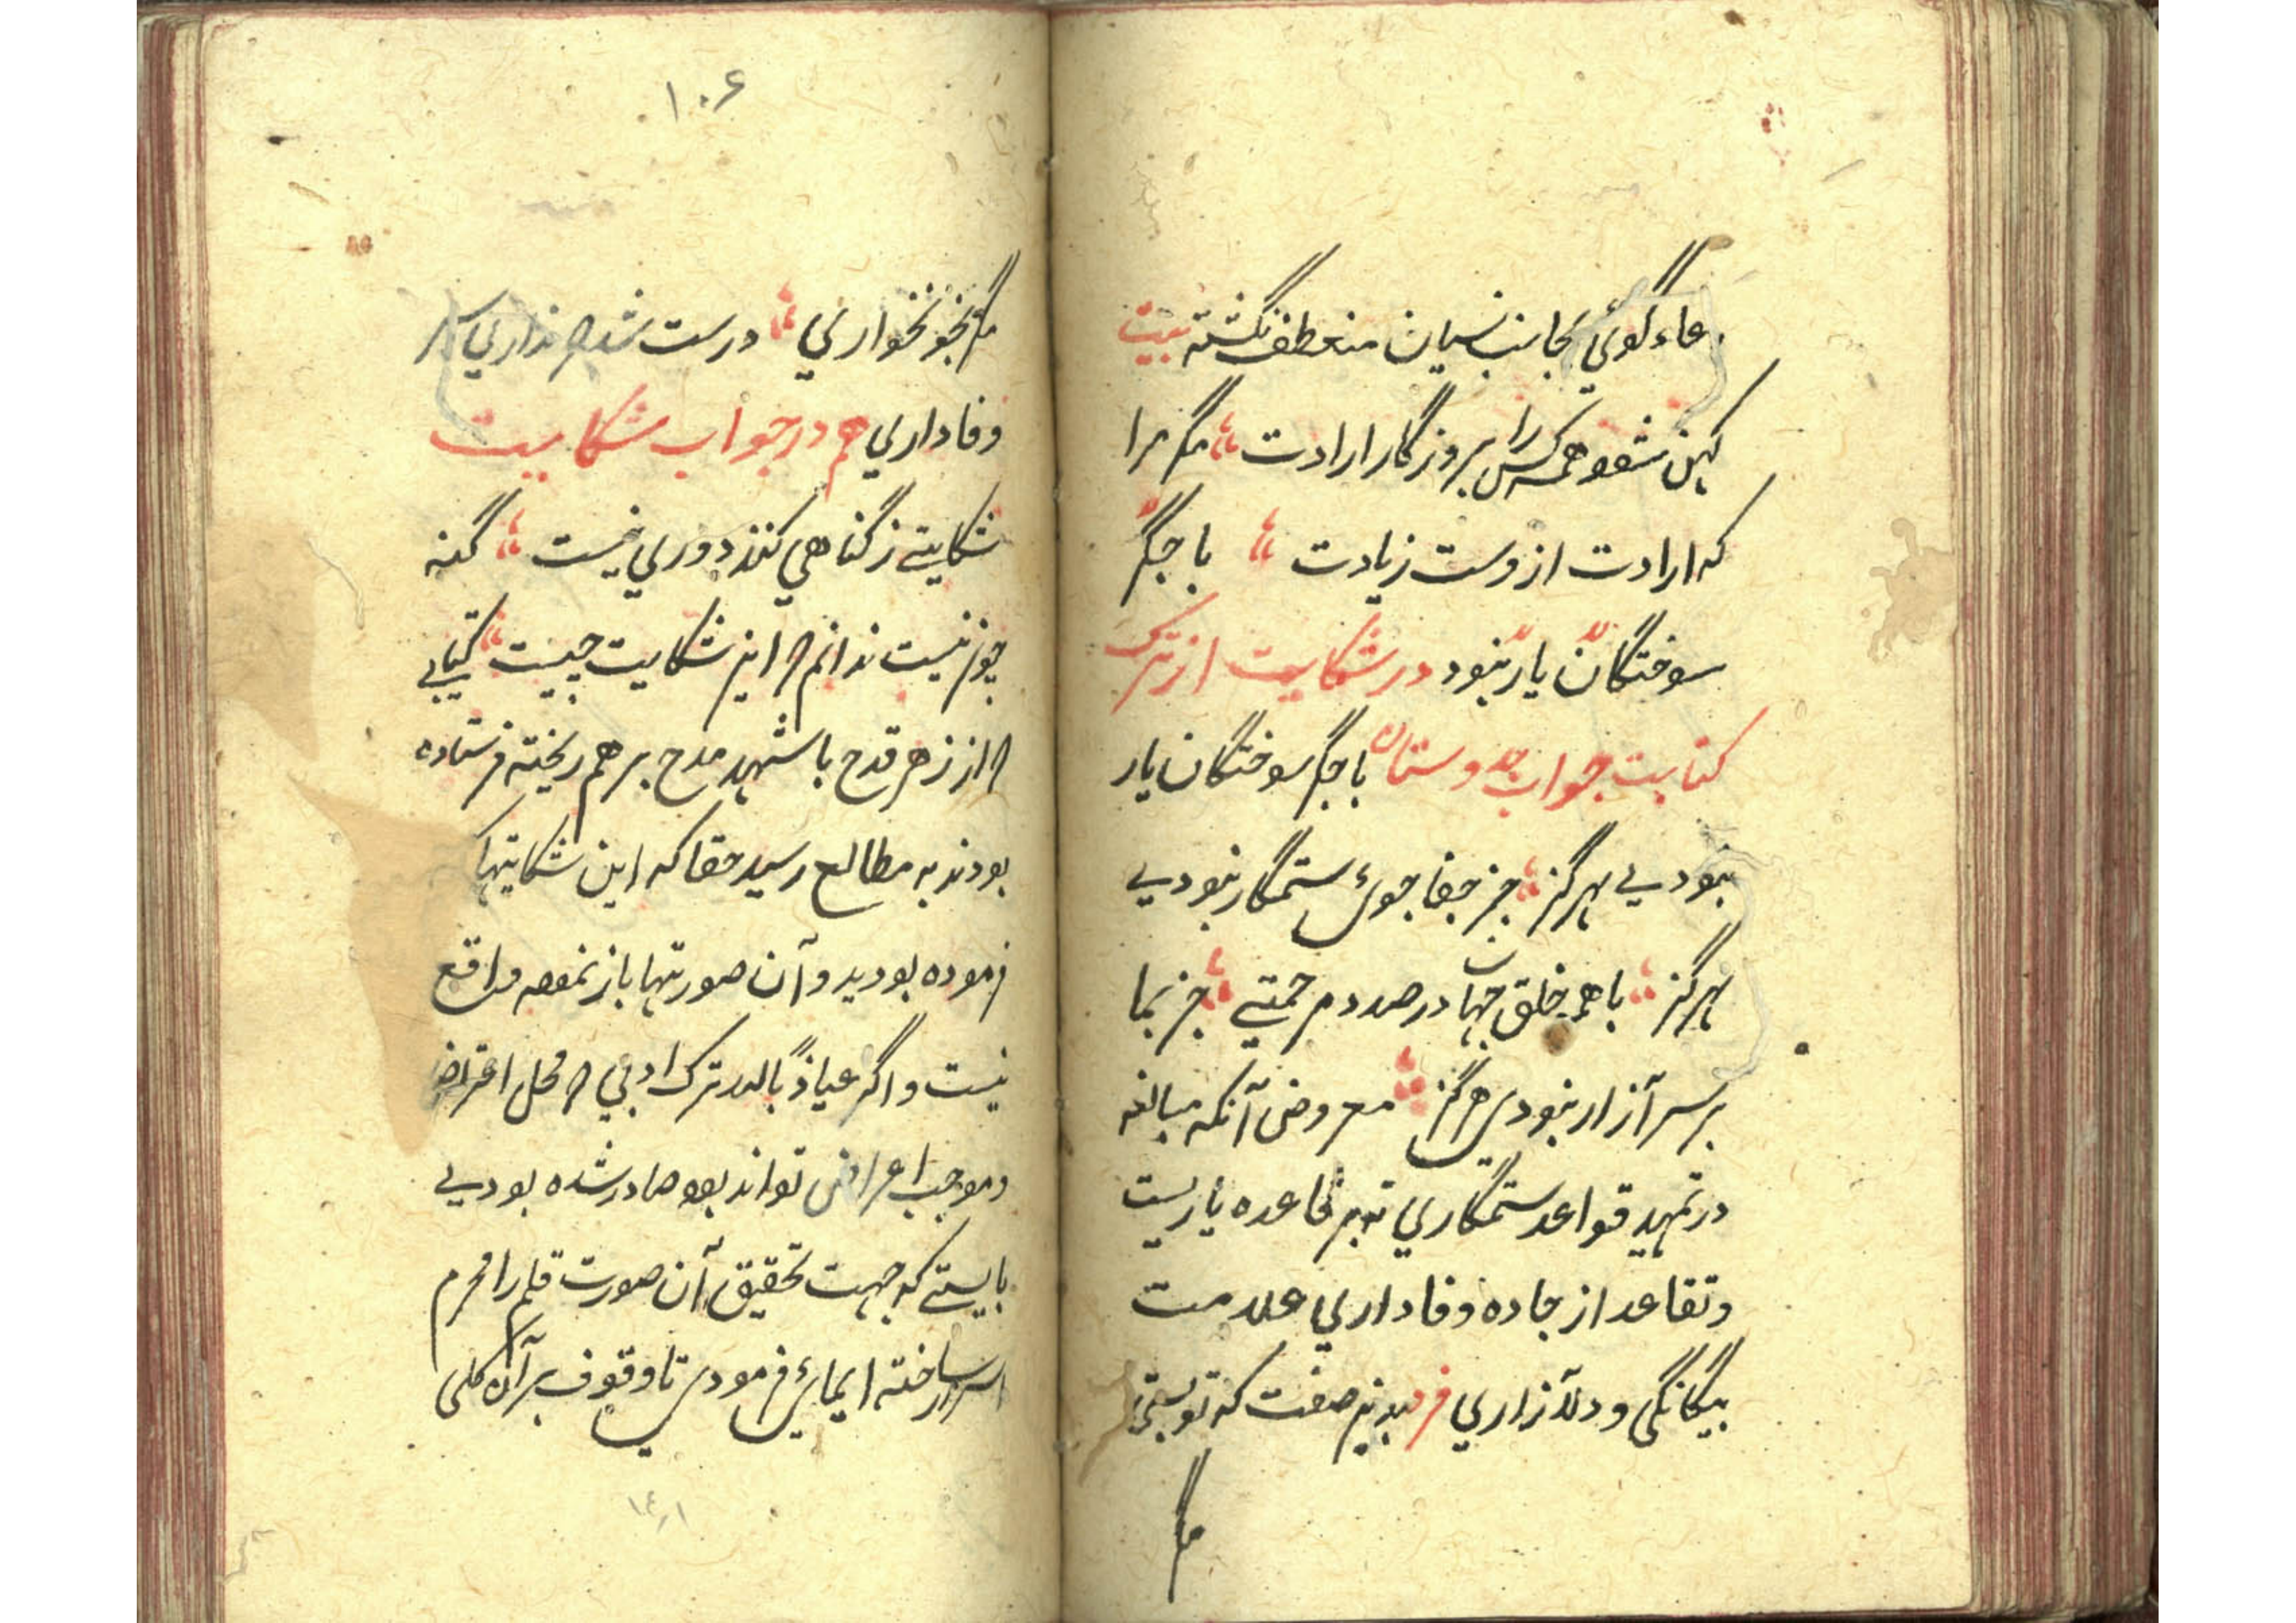 دعاء گوئي بجانب نسیان منعطف نگشته بیت
کهن شود همه کس را بروزگار ارادت مگر مرا
که ارادت از وست زیادت با جگر
سوختگان یار نبود در شکایت از ترک
کتابت جواب دوستان با جگر سوختگان یار
نبودیي هرگز جز جفا جوی ستمگار نبودیي
هرگز با همه خلق جهان در صدد مرحمتي جز بما
بر سر آزار نبودی هرگز معروض آنکه مبالغه
در تمهید قواعد ستمگاري نه بر قاعده یاریست
و تقاعد از جاده وفاداري علامت
بیگانگي و دلآزاري فرد بدین صفت که تو بستي
مگر
۱۰۶
مگر بخونخواري درست شد که نداري سر
وفاداري هم در جواب شکایت
شکایتي ز گناهي کنند دوري نیست گنه
چو نیست ندانم که این شکایت چیست کتابي
که از زهر قدح با شهد مدح بر هم ریخته فرستاده
بودند به مطالعه رسید حقا که این شکایتها که
فرموده بودید و آن صورتها باز نموده واقع
نیست و اگر عیاذاً بالله ترک ادبي که محل اعتراض
و موجب اعراض تواند بود صادر شده بودیي
بایستي که جهت تحقیق آن صورت قلم را محرم
اسرار ساخته ایمائي فرمودی تا وقوف بر آن کلی